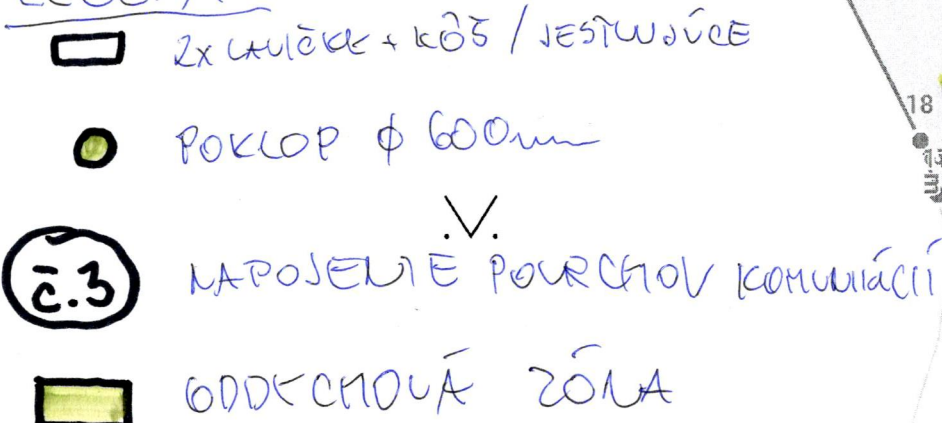 2x LAVIČKE + KÔŠ / JESTVUJÚCE
POKLOP ϕ 600mm
.V.
č.3 NAPOJENIE POVRCHOV KOMUNIÁCIÍ
ODDYCHOVÁ ZÓNA
18